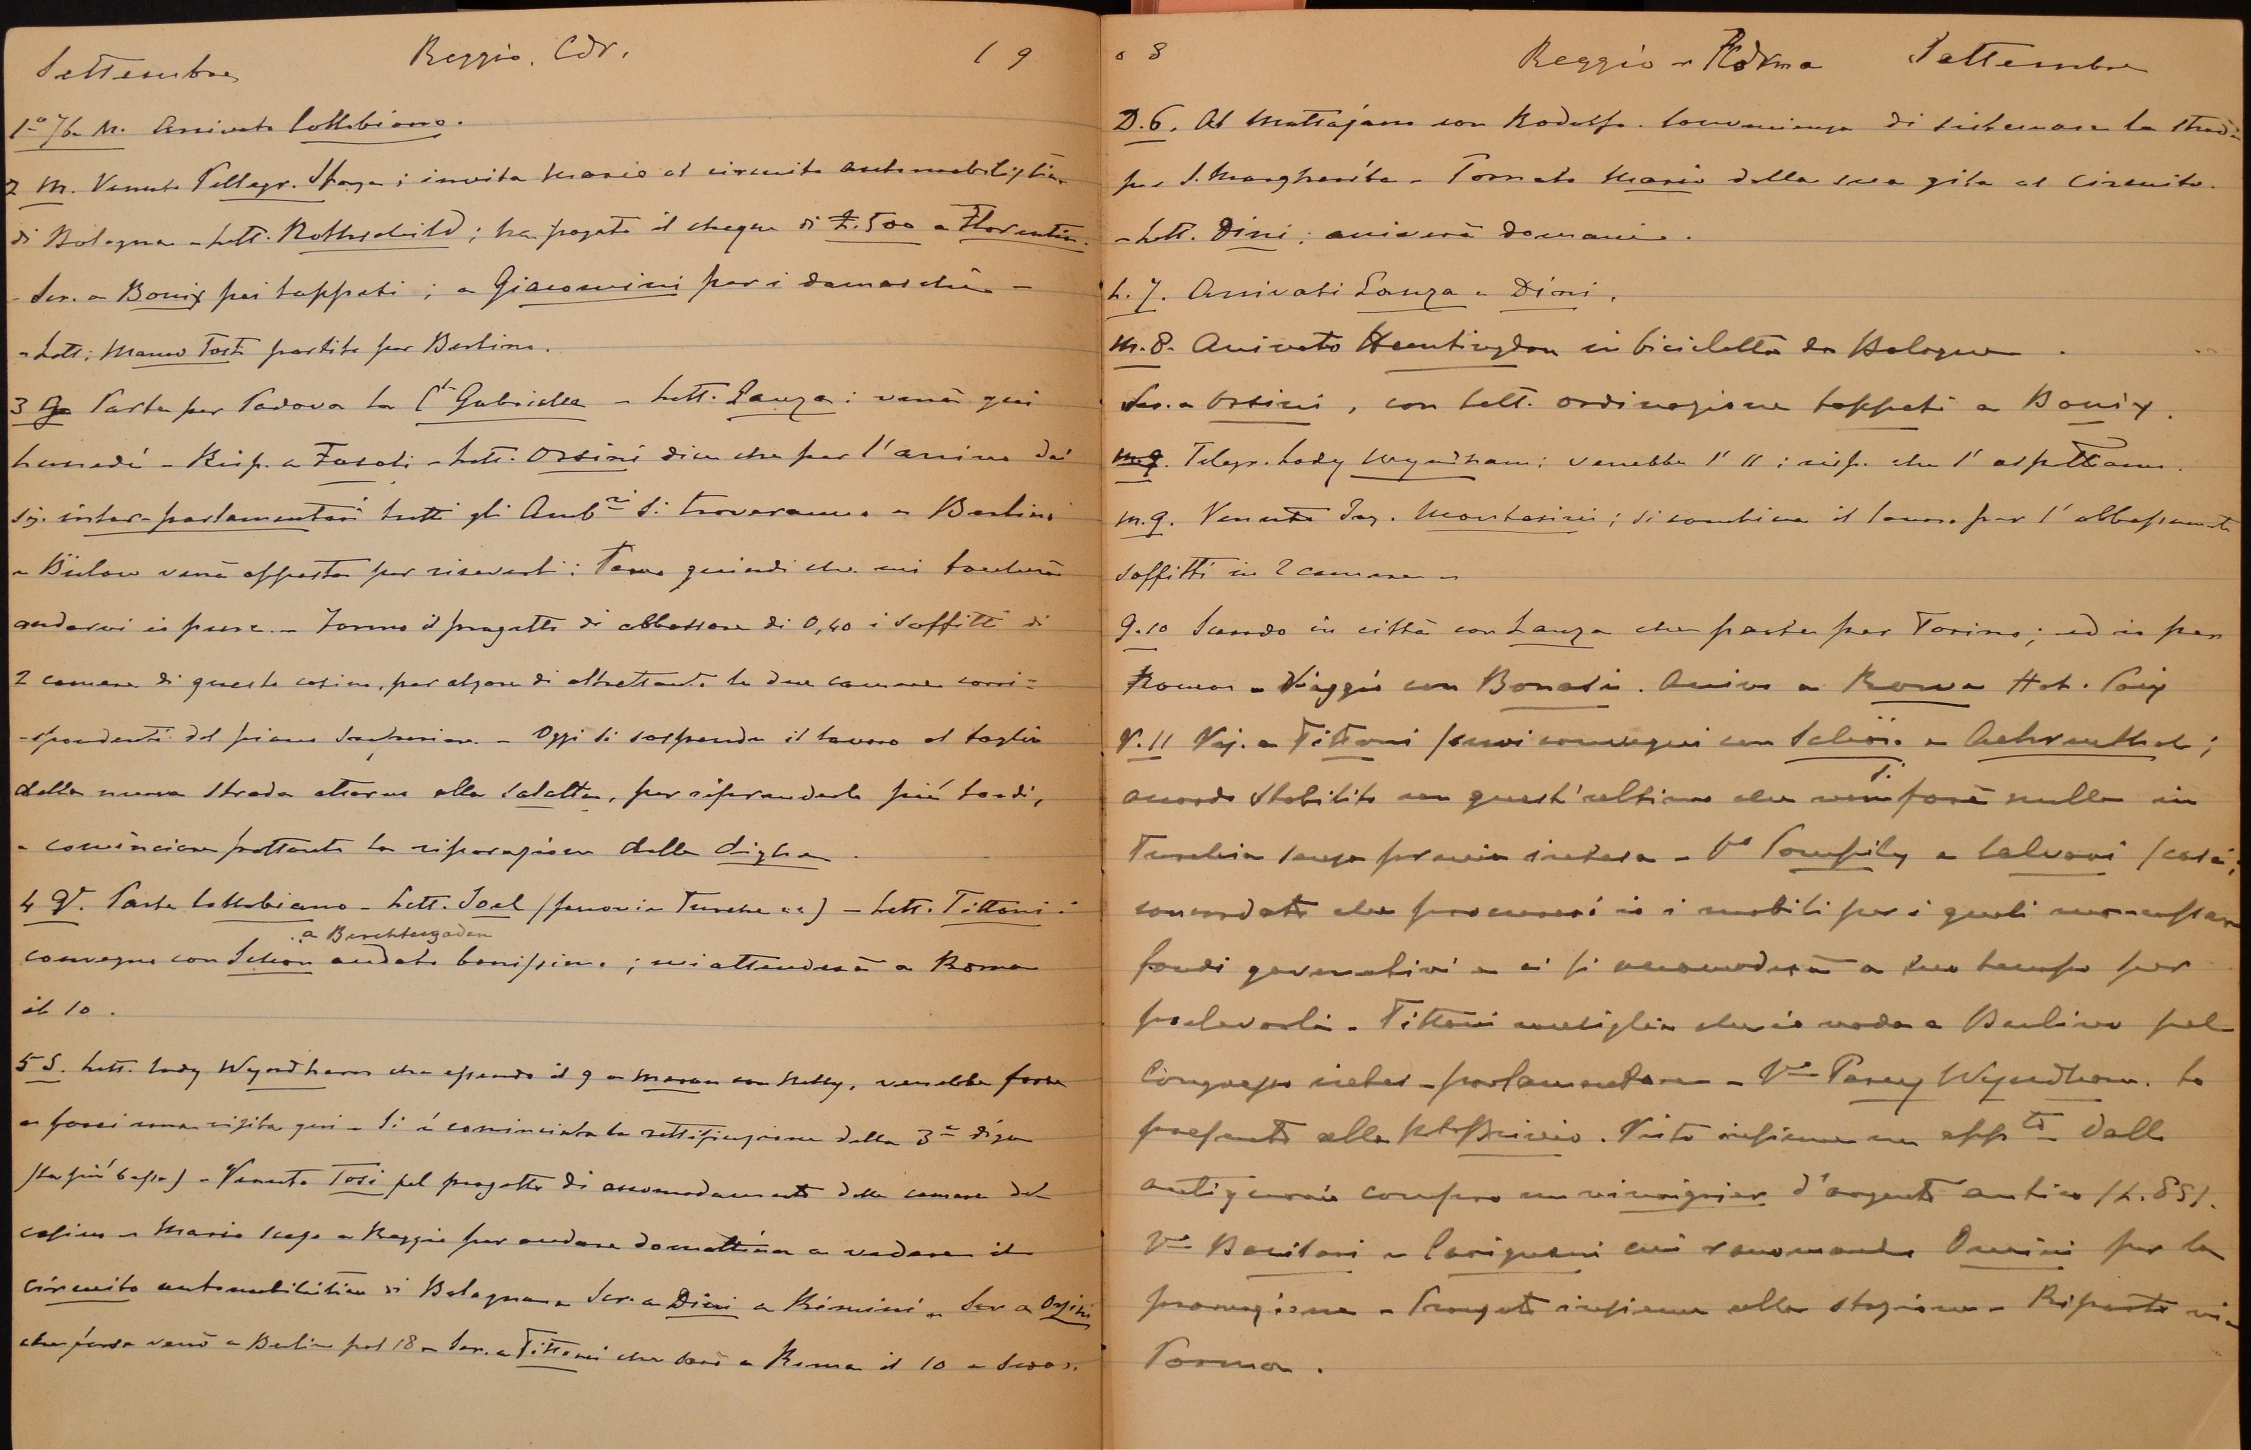 Settembre Reggio. Cdr. 19
1º 7bre M. Arrivato Collobiano.
2 M. Venuto Pellegr. Sforza ; invita Mario al circuito automobilistico
di Bologna - Lett. Rothschild ; ha pagato il cheque di £.500 a Florentin.
- Scr. a Bonix pei tappeti ; a Giacomini per i damaschi -
- Lett: Marco Tosti partito per Berlino.
3 G. Parte per Padova la Cª Gabriella - Lett. Lanza : verrà qui
Lunedì - Risp. a Fasoli - Lett. Orsini dice che per l'arrivo dei
sig. inter-parlamentari tutti gli Ambri si troveranno a Berlino
e Bülow verrà apposta per riceverli : Temo quindi che mi toccherà
andarvi io pure. - Formo il progetto di abbassare di 0,40 i soffitti di
2 camere di questo casino, per alzare di altrettanto le due camere corri=
-spondenti del piano superiore. - Oggi si sospende il lavoro al taglio
della nuova strada attorno alla saletta, per riprenderlo più tardi,
e cominciare frattanto la riparazione delle dighe.
4 V. Parte Collobiano - Lett. Joel (ferrovie Turche ecc) - Lett. Tittoni :
a Berchtesgaden
convegno con Schön andato benissimo ; mi attenderà a Roma
il 10 .
5 S. Lett. Lady Wyndham che essendo il 9 a Meran con Nelly, verrebbe forse
a farci una visita qui - Si è cominciata la rettificazione della 3ª diga
(la più bassa) - Venuto Tosi pel progetto di accomodamento delle camere del
casino - Mario scese a Reggio per andare domattina a vedere il
circuito automobilistico di Bologna - Scr. a Dini a Rimini - Scr a Orsini
che forse verrò a Berlino pel 18 - Scr. a Tittoni che sarò a Roma il 10 a sera.
08 Reggio - Roma Settembre
D. 6. Al Mattajano con Rodolfo. Convenienza di sistemare la strada
per S. Margherita - Tornato Mario dalla sua gita al circuito.
- Lett. Dini : arriverà domani.
L. 7. Arrivati Lanza e Dini.
M. 8. Arrivato Huntingdon in bicicletta da Bologna.
Scr. a Orsini, con lett. ordinazione tappeti a Bonix.
M. 9. Telegr. Lady Wyndham : verrebbe l' 11 ; risp. che l' aspettiamo.
M. 9. Venuto Ing. Montesini ; si combina il lavoro per l' abbassamento
soffitti in 2 camere -
G. 10 Scendo in città con Lanza che parte per Torino ; ed io per
Roma - Viaggio con Bonasi. Arrivo a Roma Hot. Paix
V. 11 Vis. a Tittoni (suoi convegni con Schön e Aehrenthal ;
accordo stabilito con quest'ultimo che non si farà nulla in
Turchia senza previa intesa - Vº Pompilj e Calvari (casa) ;
concordato che procurerò io i mobili per i quali non
fondi governativi e ci si accomoderà a suo tempo per
prelevarli. Tittoni consiglia che io vada a Berlino pel
Congresso inter-parlamentare - Vº Percy Wyndham. Lo
presento alla Brivio. Visto insieme un appto dalla
antiquario compro un vinaigrier d'argento antico (L. 85).
Vº Bacitari e Carignani cui raccomando Omini per la
promozione - Pranzato insieme alla stazione - Riparto via
Parma.